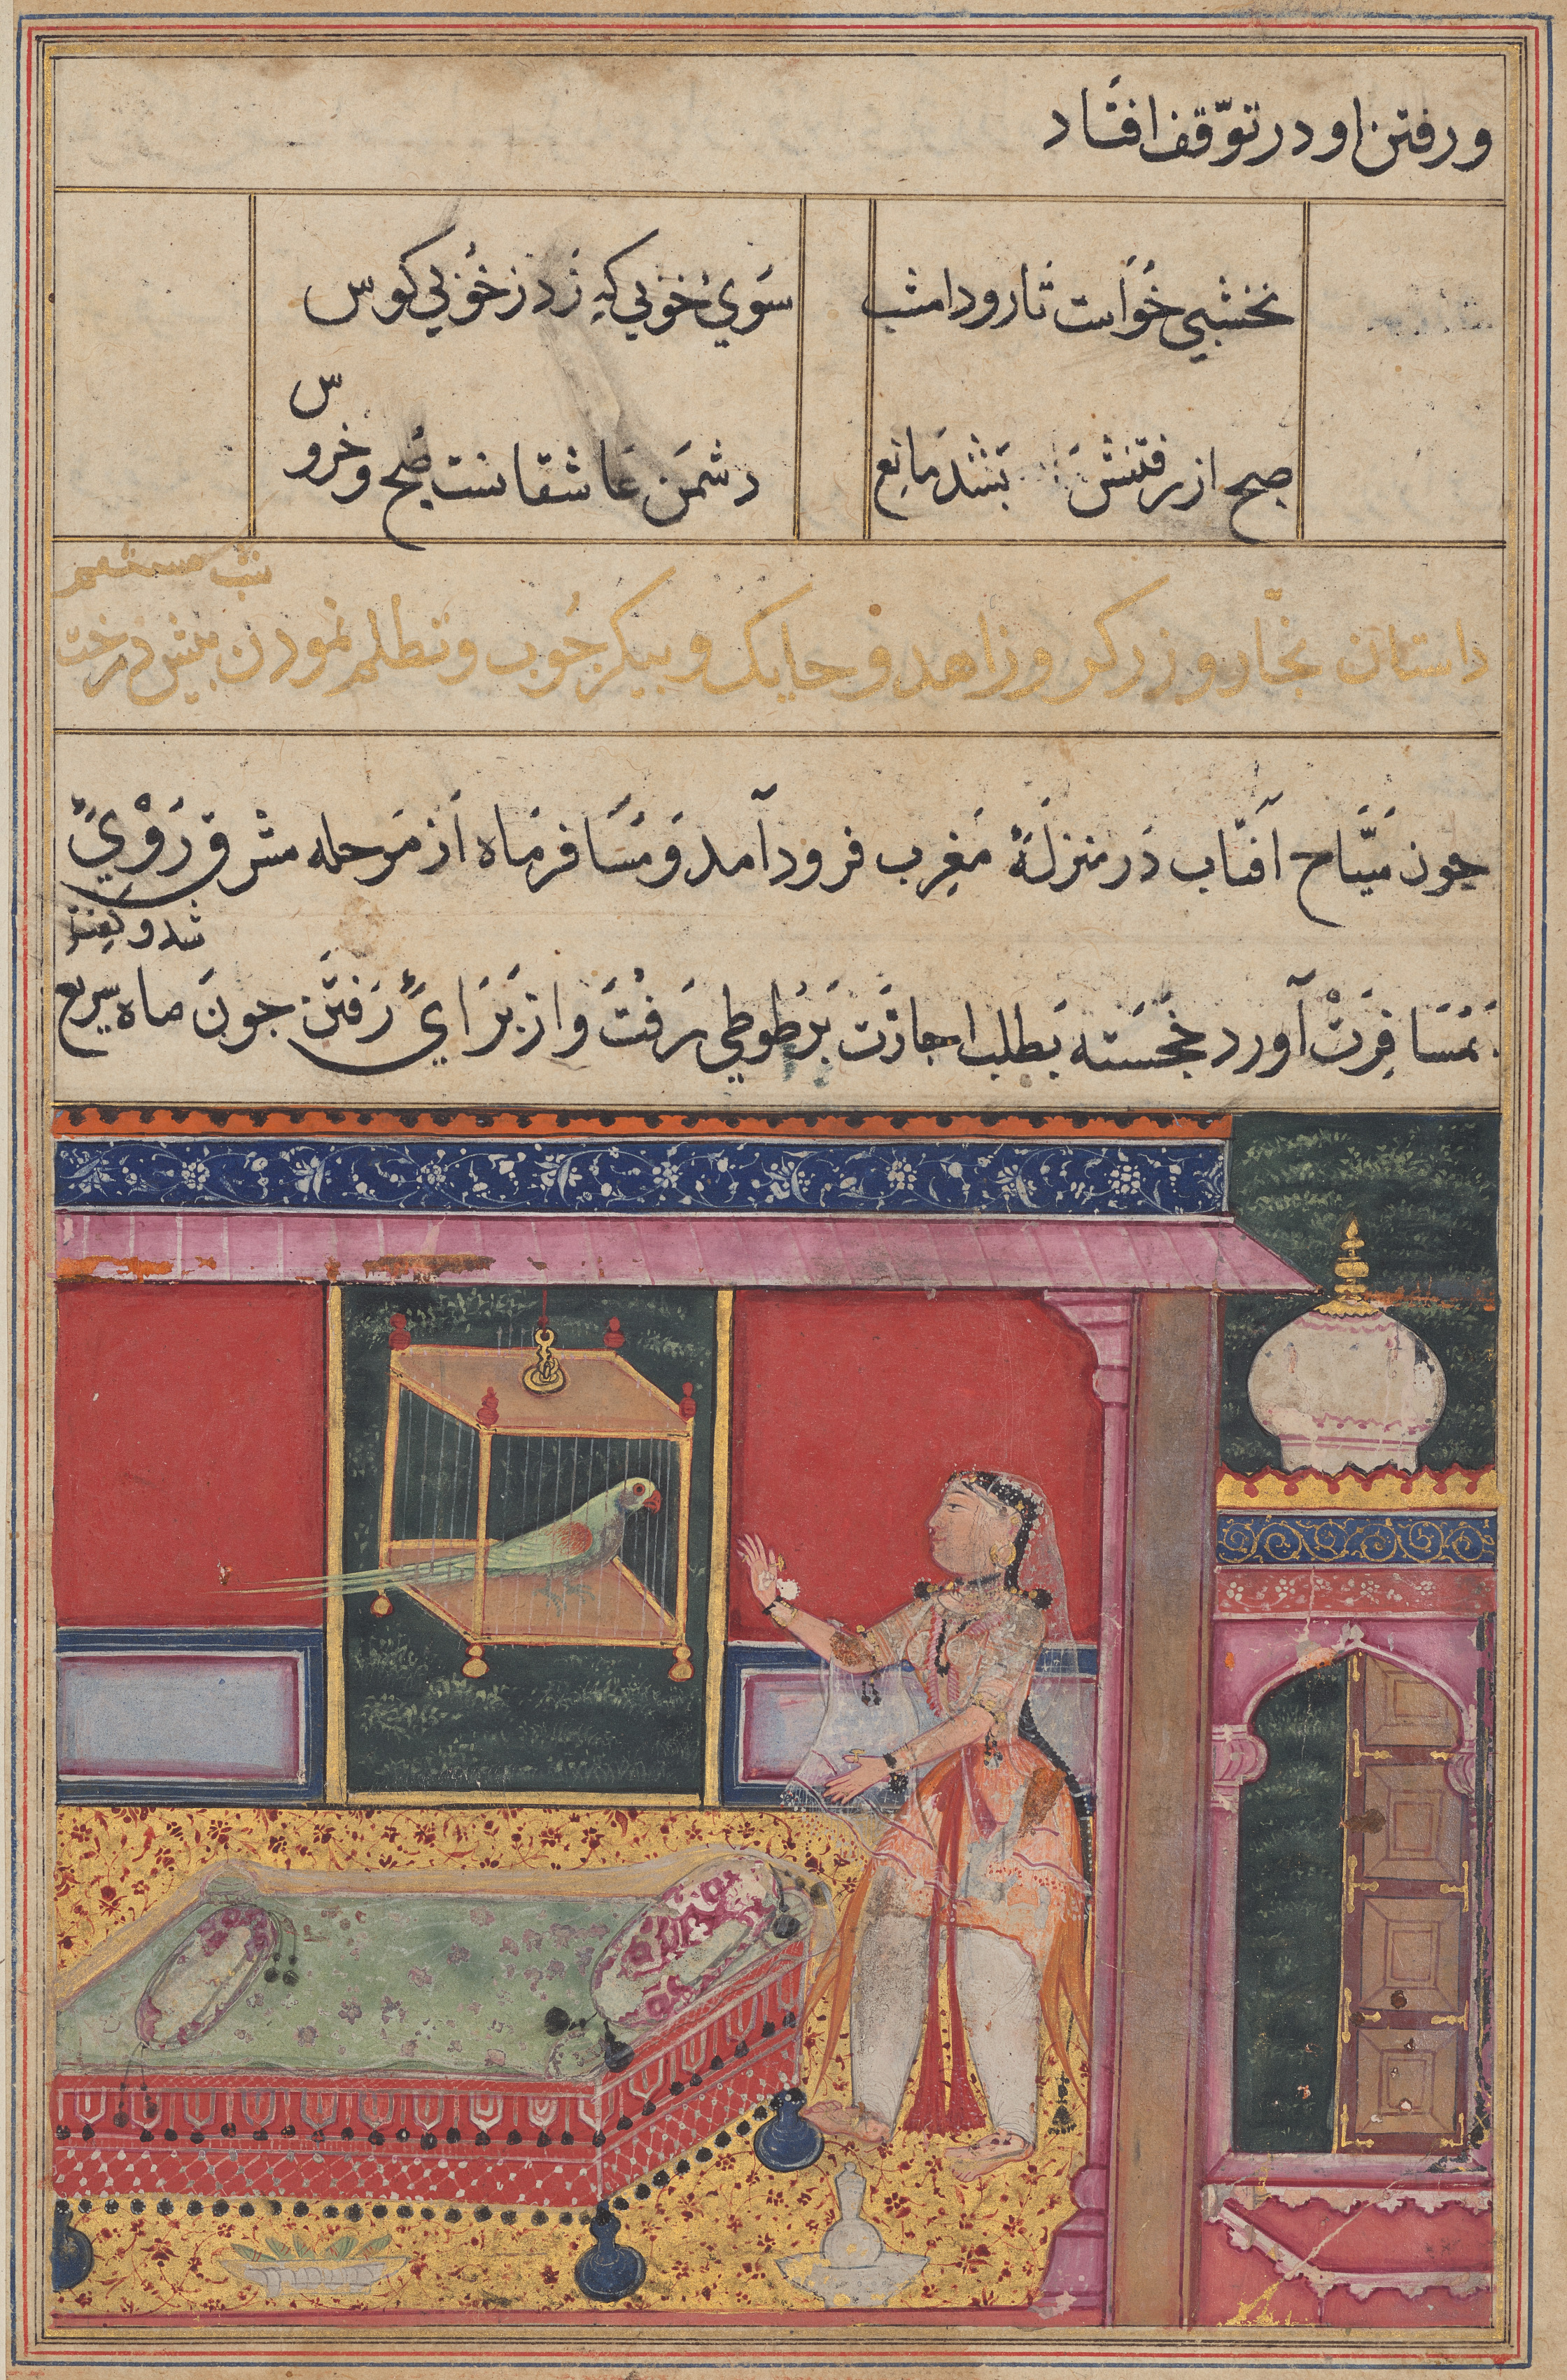 و رفتن او در توّقف افتاد
نخشبی خواست تا رود امشب سوی خوبی که زد ز خوبی کوس
صبح از رفتنش بشد مانع دشمن عاشقانست صبح و خروس
داستان نجّار و زرکر و زاهد و حایک و بیکر جوب و تظلم نمودن بیش درخت شب
جون سیّاح آفتاب در منزلهٔ مغرب فرود آمد و مسافر ماه از مرحله مشرق روی
بمسافرت آورد خجسته بطلب اجازت بر طوطی رفت و از برای رفتن جون ماه سریع